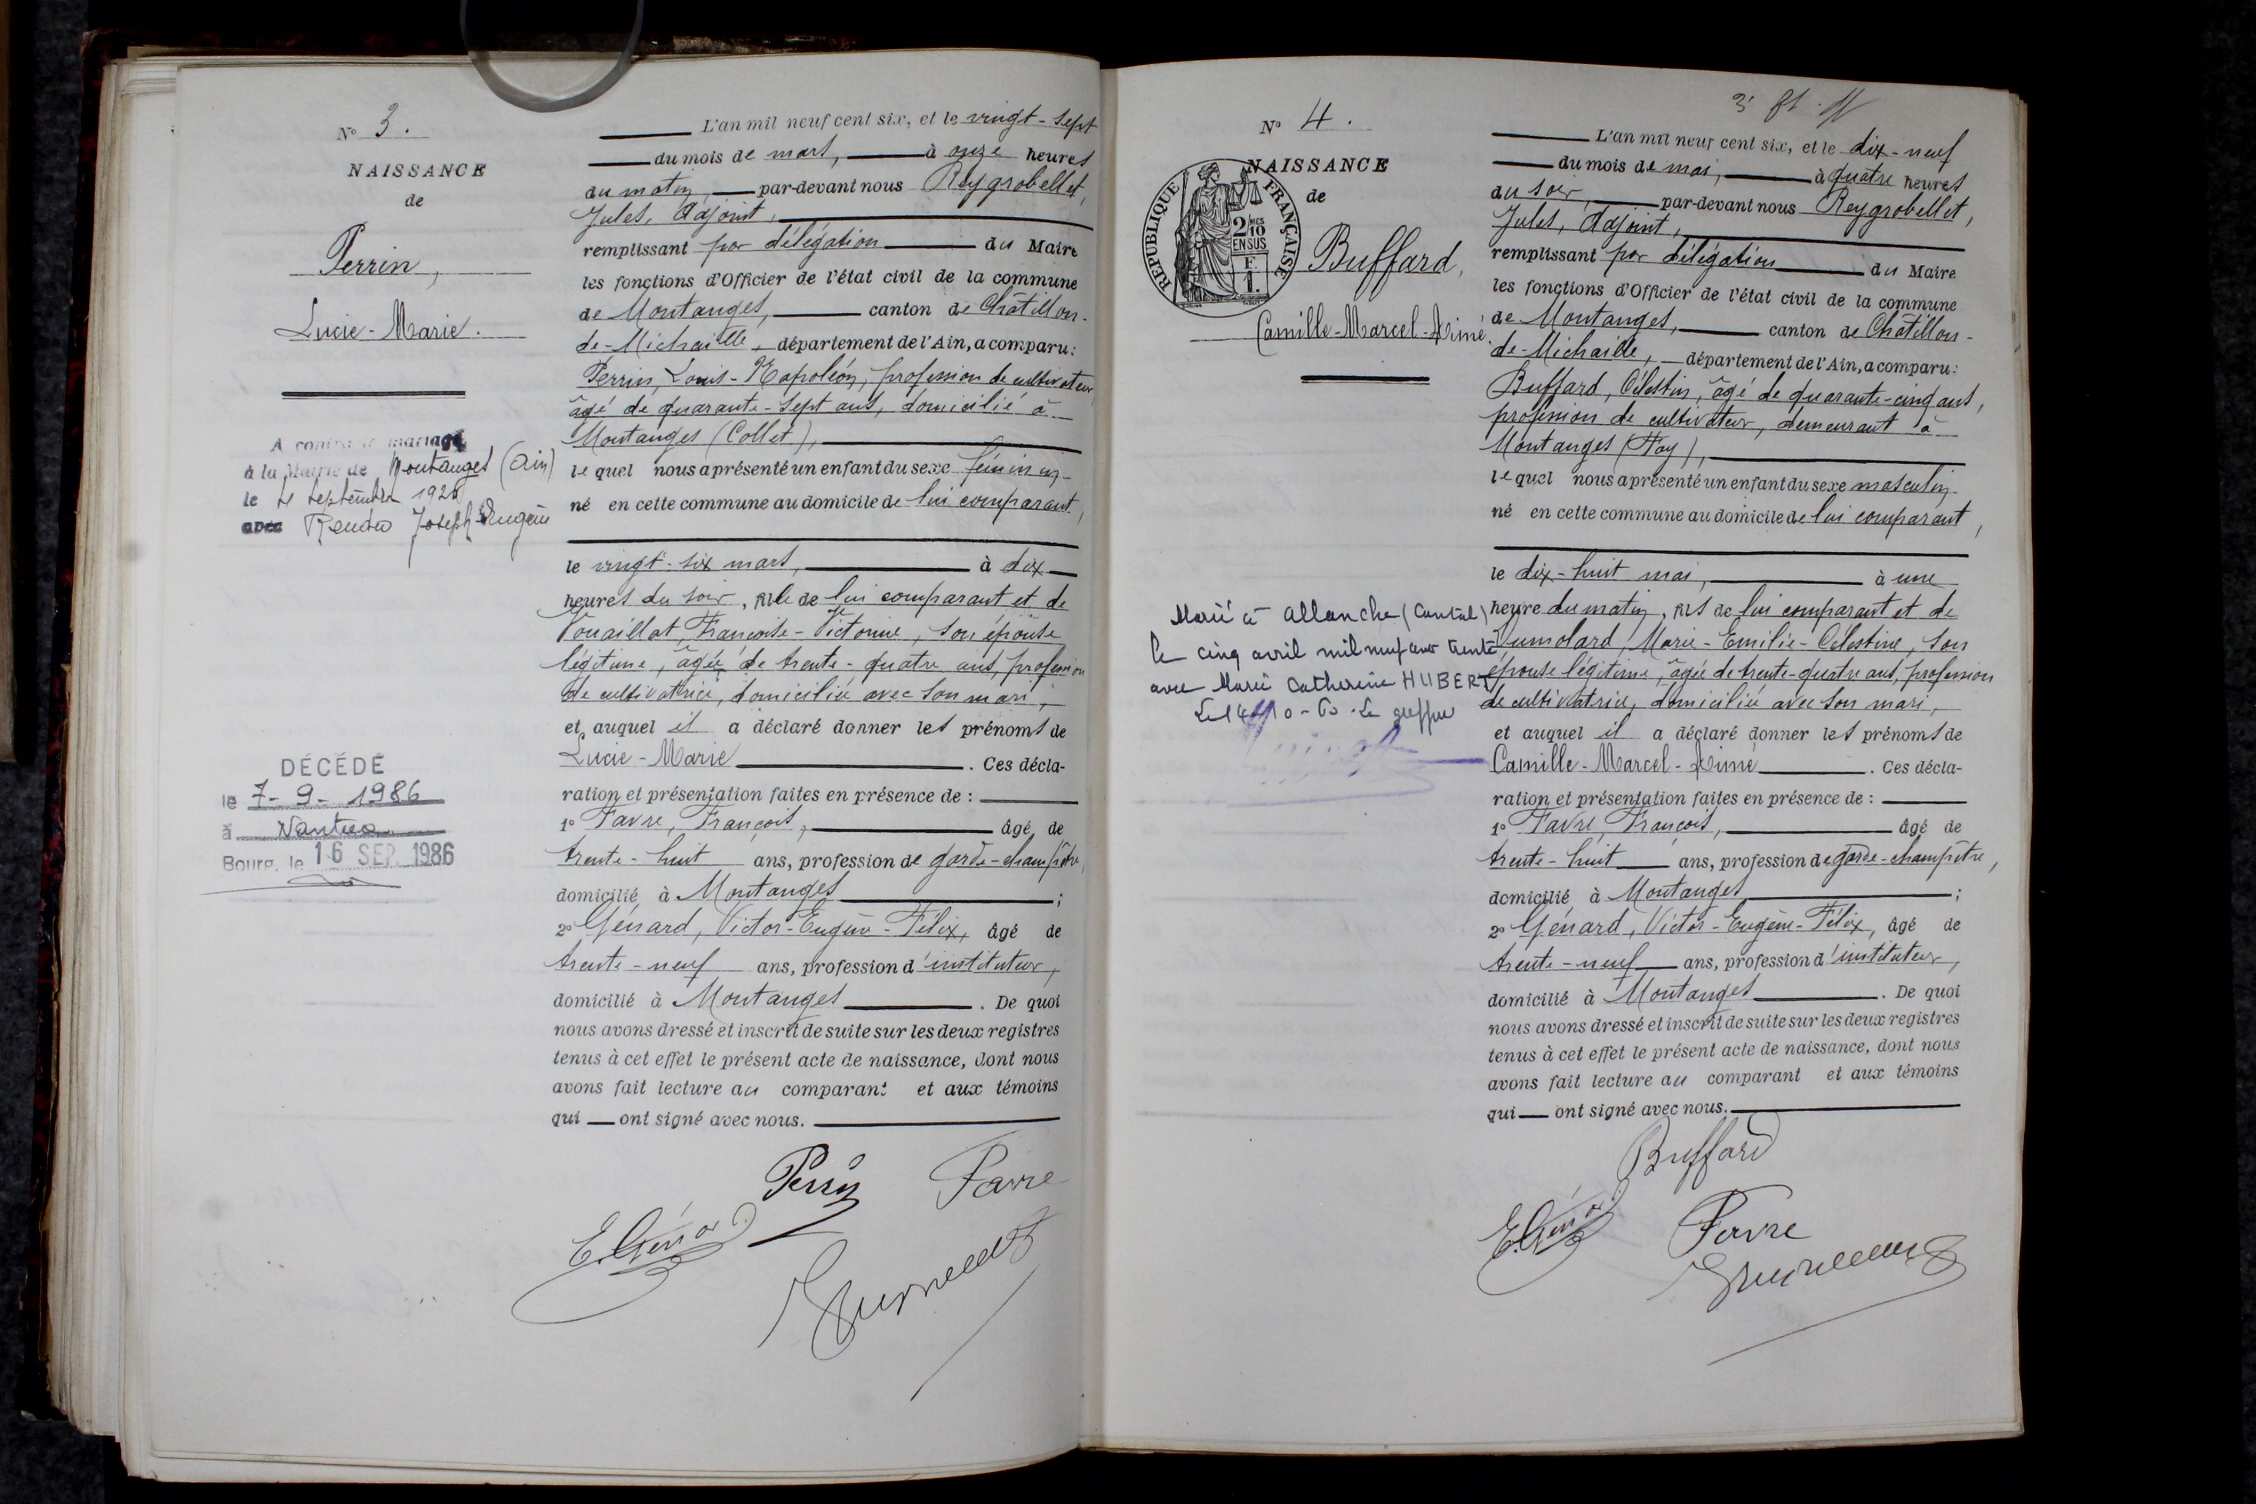 N° 3.
NAISSANCE
de
Perrin,
Lucie-Marie.
A contracté mariage
à la Mairie de Montanges (Ain)
le septembre 192
avec Joseph Eugène
DÉCÉDÉ
le 7-9-1986
à Nantua
Bourg, le 16 SEP. 1986
L'an mil neuf cent six, et le vingt-sept
du mois de mars, à onze heures
du matin, par-devant nous Reygrobellet,
Jules, Adjoint,
remplissant par délégation du Maire
les fonctions d'Officier de l'état civil de la commune
de Montanges, canton de Châtillon-
de-Michaille, département de l'Ain, a comparu:
Perrin, Louis-Napoléon, profession de cultivateur,
âgé de quarante-sept ans, domicilié à
Montanges (Collet),
le quel nous a présenté un enfant du sexe féminin,
né en cette commune au domicile de lui comparant,
le vingt-six mars, à dix
heures du soir, fille de lui comparant et de
Vouaillat, Françoise-Victorine, son épouse
légitime, âgée de trente-quatre ans, profession
de cultivatrice, domiciliée avec son mari,
et auquel il a déclaré donner les prénoms de
Lucie-Marie. Ces décla-
ration et présentation faites en présence de :
1° Favre, François, âgé de
trente-huit ans, profession de garde-champêtre,
domicilié à Montanges;
2° Génard, Victor-Eugène-Félix, âgé de
trente-neuf ans, profession d'instituteur,
domicilié à Montanges. De quoi
nous avons dressé et inscrit de suite sur les deux registres
tenus à cet effet le présent acte de naissance, dont nous
avons fait lecture au comparant et aux témoins
qui ont signé avec nous.
Perrin Favre
E. Génard
N° 4.
NAISSANCE
de
REPUBLIQUE FRANÇAISE
2 10 EN SUS
F. 1.
Buffard,
Camille-Marcel-Aimé.
Marié à Allanche (Cantal)
le cinq avril mil neuf cent trente
avec Marie Catherine HUBERT
Le greffier
L'an mil neuf cent six, et le dix-neuf
du mois de mai, à quatre heures
du soir, par-devant nous Reygrobellet,
Jules, Adjoint,
remplissant par délégation du Maire
les fonctions d'Officier de l'état civil de la commune
de Montanges, canton de Châtillon-
de-Michaille, département de l'Ain, a comparu:
Buffard, Célestin, âgé de quarante-cinq ans,
profession de cultivateur, demeurant à
Montanges
le quel nous a présenté un enfant du sexe masculin
né en cette commune au domicile de lui comparant,
le dix-huit mai, à une
heure du matin, fils de lui comparant et de
Jumolard, Marie-Emilie-Célestine, son
épouse légitime, âgée de trente-quatre ans, profession
de cultivatrice, domiciliée avec son mari,
et auquel il a déclaré donner les prénoms de
Camille-Marcel-Aimé. Ces décla-
ration et présentation faites en présence de :
1° Favre, François, âgé de
trente-huit ans, profession de garde-champêtre,
domicilié à Montanges;
2° Génard, Victor-Eugène-Félix, âgé de
trente-neuf ans, profession d'instituteur,
domicilié à Montanges. De quoi
nous avons dressé et inscrit de suite sur les deux registres
tenus à cet effet le présent acte de naissance, dont nous
avons fait lecture au comparant et aux témoins
qui ont signé avec nous.
Buffard
E. Génard Favre